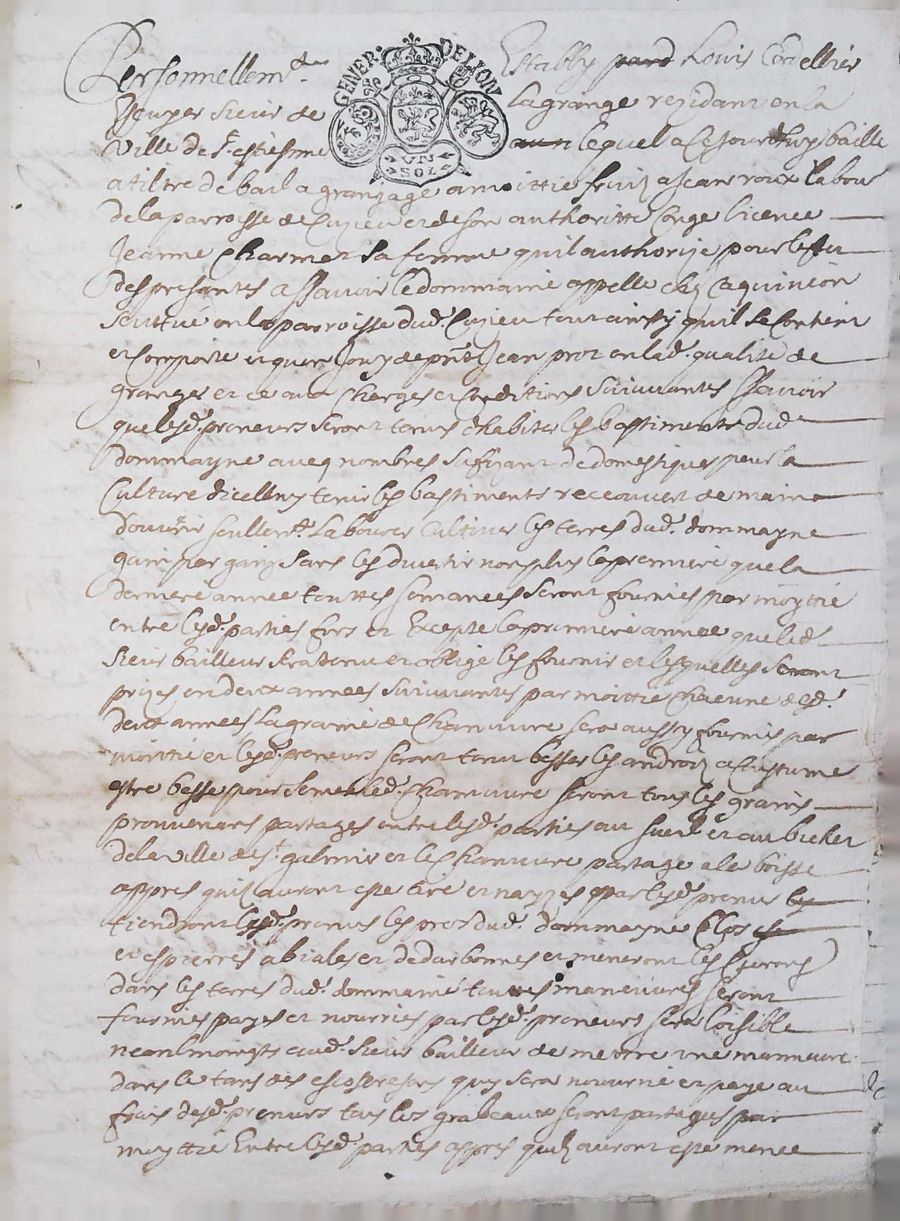 Personnellemt. Establly pard Louis Cordellier
Esuyer sieur de la grange rezidant en la
GENER. DE LION
UN SOL
Ville de St. estienne lequel a cejourdhuy baille
a tiltre de bail a grangage a moittie fruiz a Jean roux labour
de la parroisse de Cuzieu et de son authoritte conge licence
Jeanne Charmet sa femme quil authorize pour leffet
des presantes assavoir le dommaine appelle chez
scittué en la parroisse dud. Cuzieu tout ainsy quil se contient
et comporte et quen jouy de pnt. Jean prot en lad. qualite de
granger et ce aux charges et conditions suivvantes ssavoir
que lesd. preneurs seront tenus dhabiter les bastiments dud.
dommayne avecq nombres sufizant de domestiques pour la
culture dicelluy tenir les bastiments recouvert de maine
douvrie seullemt. labourer cultiver les terres dud. dommayne
sans les divertir non plus la premiere que la
derniere année touttes semances seront fournies par moyttie
entre lesd. parties fors et excepte la premiere année que led.
sieur bailleur sera tenu et oblige les fournir et lesquelles seront
prizes en deux années suivvantes par moittie chacune desd.
deux années la graine de chanvvre sera aussy fournie par
moittie et lesd. preneurs seront tenus besser les androiz a custume
estre besse pour semer led. chanvvre seront tous les grains
provvenans partages entre lesd. parties au sueil et au bichet
de la ville de St. galmier et le chanvvre partage a la boisse
appres quil auront este tire et nayzes par lesd. preneurs
tiendront lesd. preneurs les prés dud. dommayne clos
et espierres abiales et dedarbonnes et meneront les
dans les terres dud. dommaine touttes maneuvres seront
fournies payes et nourries par lesd. preneurs sera loisible
neantmoingts aud. sieur bailleur de mettre une manneuvre
dans le tans des escossesons quy sera nourrie et paye au
frais desd. preneurs tous les grabeaux seront partages par
moyttie entre lesd. parties appres quilz auront este menee